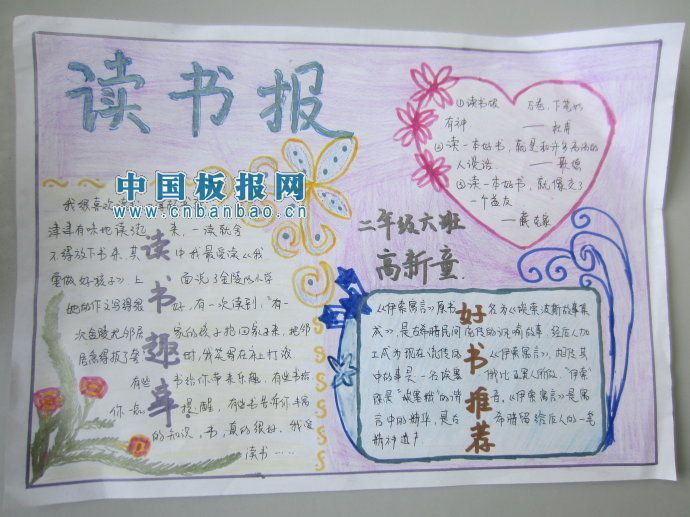 读书报
中国板报网
www.cnbanbao.cn
我很喜欢
津津有味地读 来，一读就舍
不得放下书来，其 中我最爱读《我
要做好孩子》上 面说了金陵 小学
她的作文写得很 好，有一次读到，有一
次金陵 邻居 家的孩子抱回家子来，她邻
时，我笑得在床上打滚
有些 书给你带来乐趣，有些书给
你一 提醒，有些书告诉你丰富
的知识，书，真的很好，我爱
读书……
读书趣事
①读书破 万卷，下笔如
有神 ——杜甫
②读一本好书，就是和许多高尚的
人谈话 ——歌德
③读一本好书，就像交了
一个益友
——臧克家
二年级六班
高新童
《伊索寓言》原书 名为《埃索波斯故事集
成》，是古希腊民间 流传的讽喻故事，经后人加
工成为现在流传的 《伊索寓言》，
中的故事是一名埃塞 俄比亚黑人所做，“伊索”
即是“埃塞俄”的谐 音，《伊索寓言》是寓
言中的精华，是古 希腊留给后人的一笔
精神遗产
好书推荐